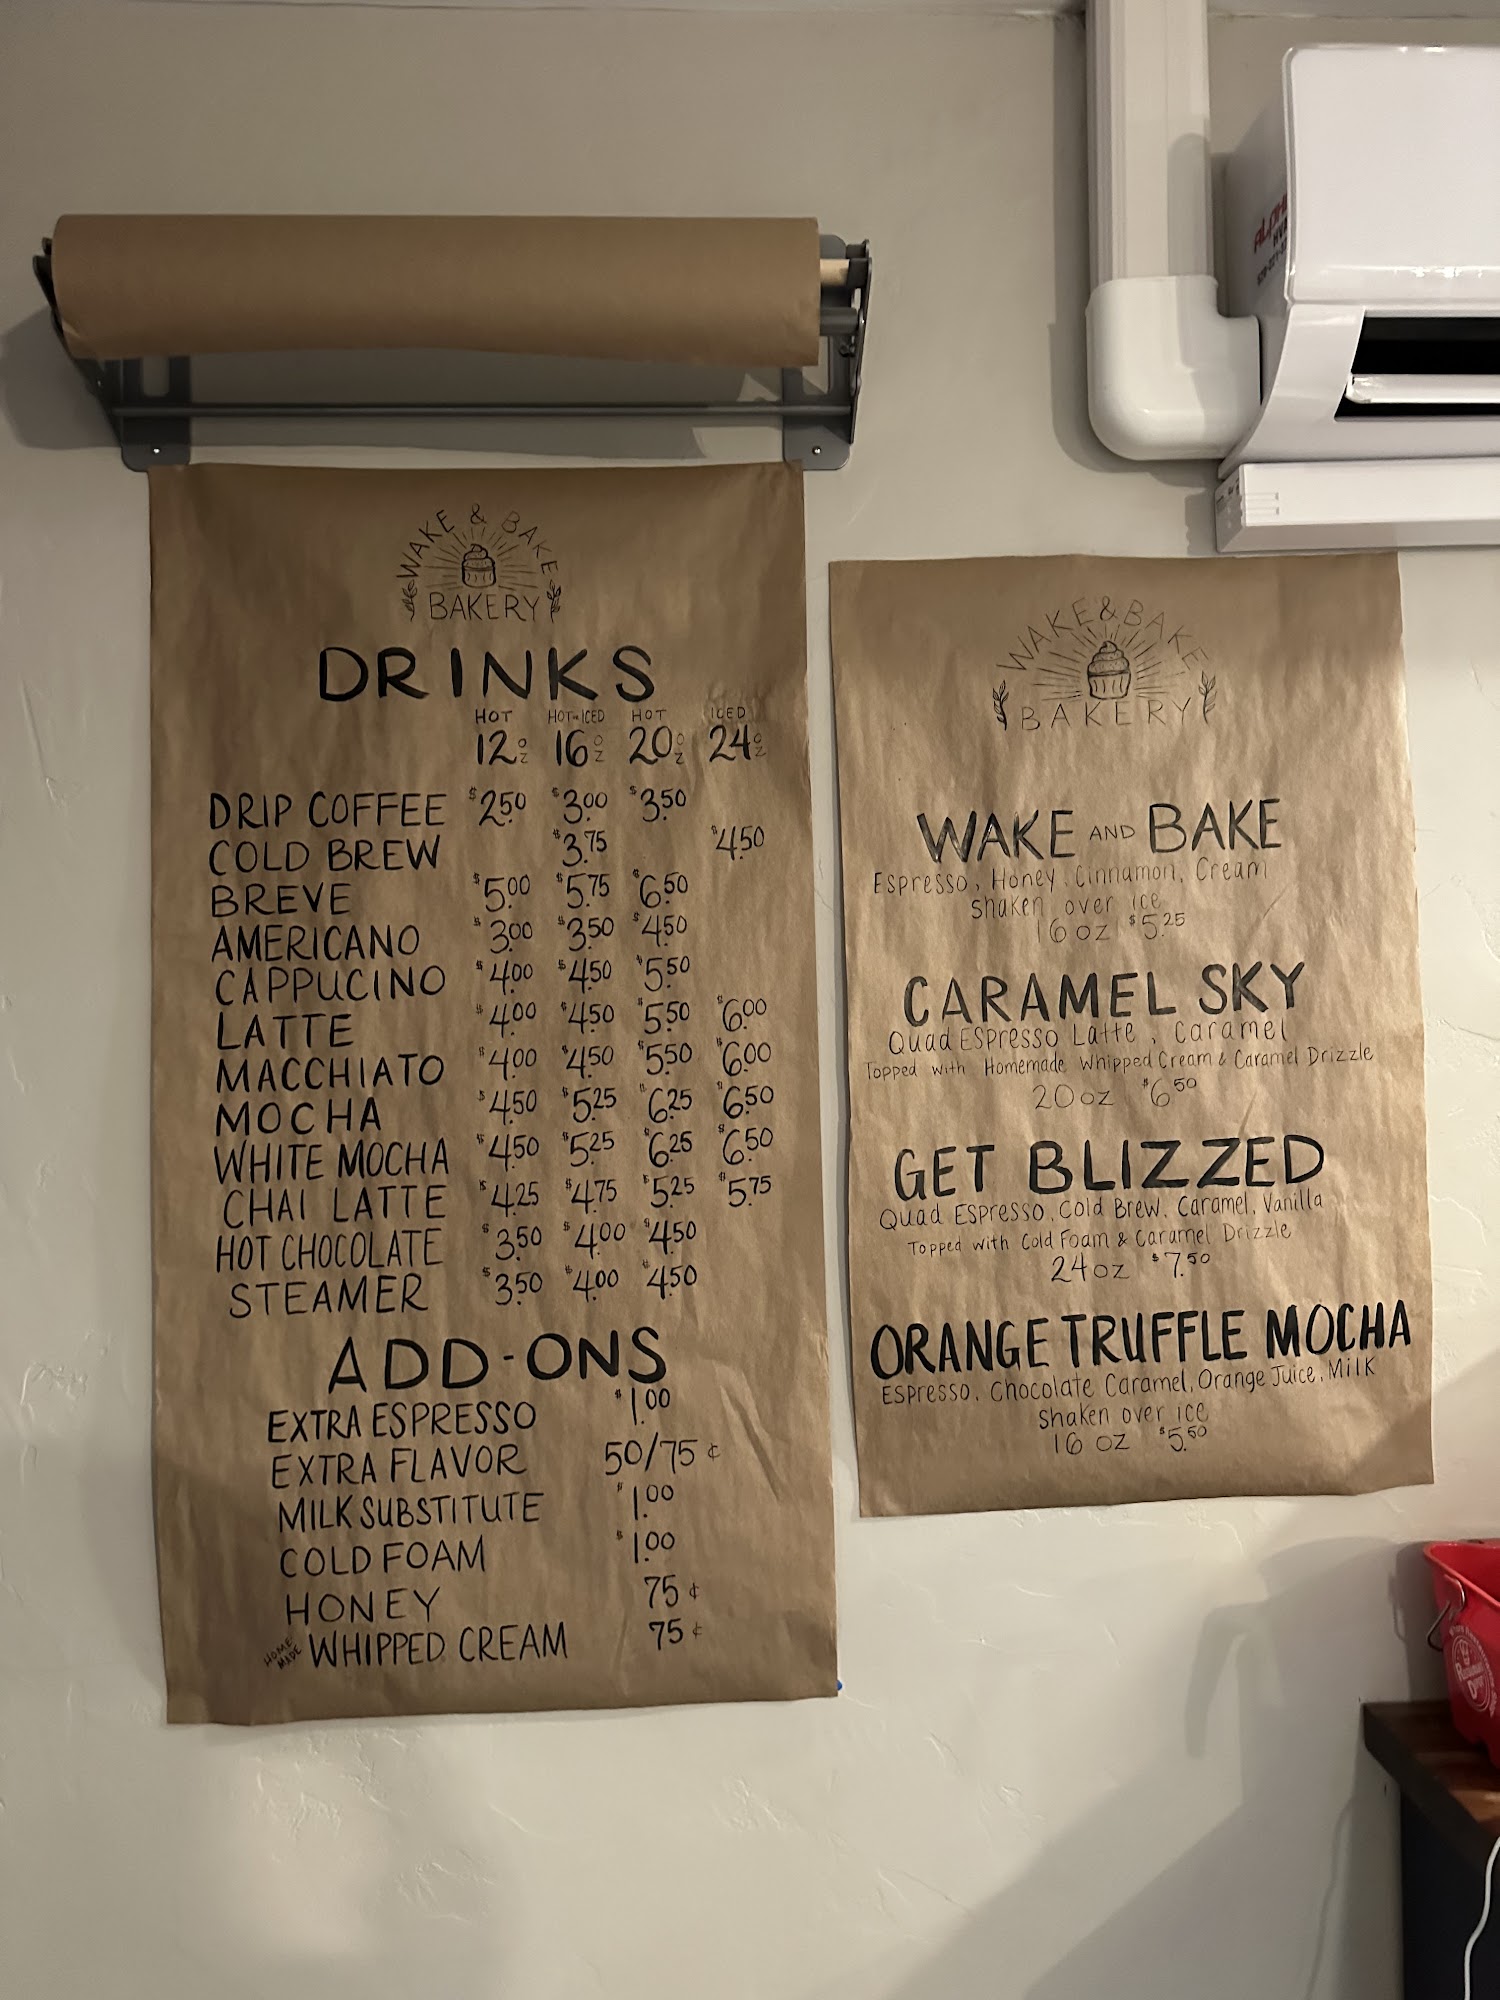 WAKE & BAKE
BAKERY
DRINKS
HOT HOT - ICED HOT ICED
12oz 16oz 20oz 24oz
DRIP COFFEE $2.50 $3.00 $3.50
COLD BREW $3.75 $4.50
BREVE $5.00 $5.75 $6.50
AMERICANO $3.00 $3.50 $4.50
CAPPUCINO $4.00 $4.50 $5.50
LATTE $4.00 $4.50 $5.50 $6.00
MACCHIATO $4.00 $4.50 $5.50 $6.00
MOCHA $4.50 $5.25 $6.25 $6.50
WHITE MOCHA $4.50 $5.25 $6.25 $6.50
CHAI LATTE $4.25 $4.75 $5.25 $5.75
HOT CHOCOLATE $3.50 $4.00 $4.50
STEAMER $3.50 $4.00 $4.50
ADD-ONS
EXTRA ESPRESSO $1.00
EXTRA FLAVOR 50/75¢
MILK SUBSTITUTE $1.00
COLD FOAM $1.00
HONEY 75¢
HOME MADE WHIPPED CREAM 75¢
WAKE & BAKE
BAKERY
WAKE AND BAKE
Espresso, Honey, Cinnamon, Cream
shaken over ice
16 oz $5.25
CARAMEL SKY
Quad Espresso Latte, Caramel
Topped with Homemade Whipped Cream & Caramel Drizzle
20 oz $6.50
GET BLIZZED
Quad Espresso, Cold Brew, Caramel, Vanilla
Topped with Cold Foam & Caramel Drizzle
24 oz $7.50
ORANGE TRUFFLE MOCHA
Espresso, Chocolate Caramel, Orange Juice, Milk
shaken over ice
16 oz $5.50